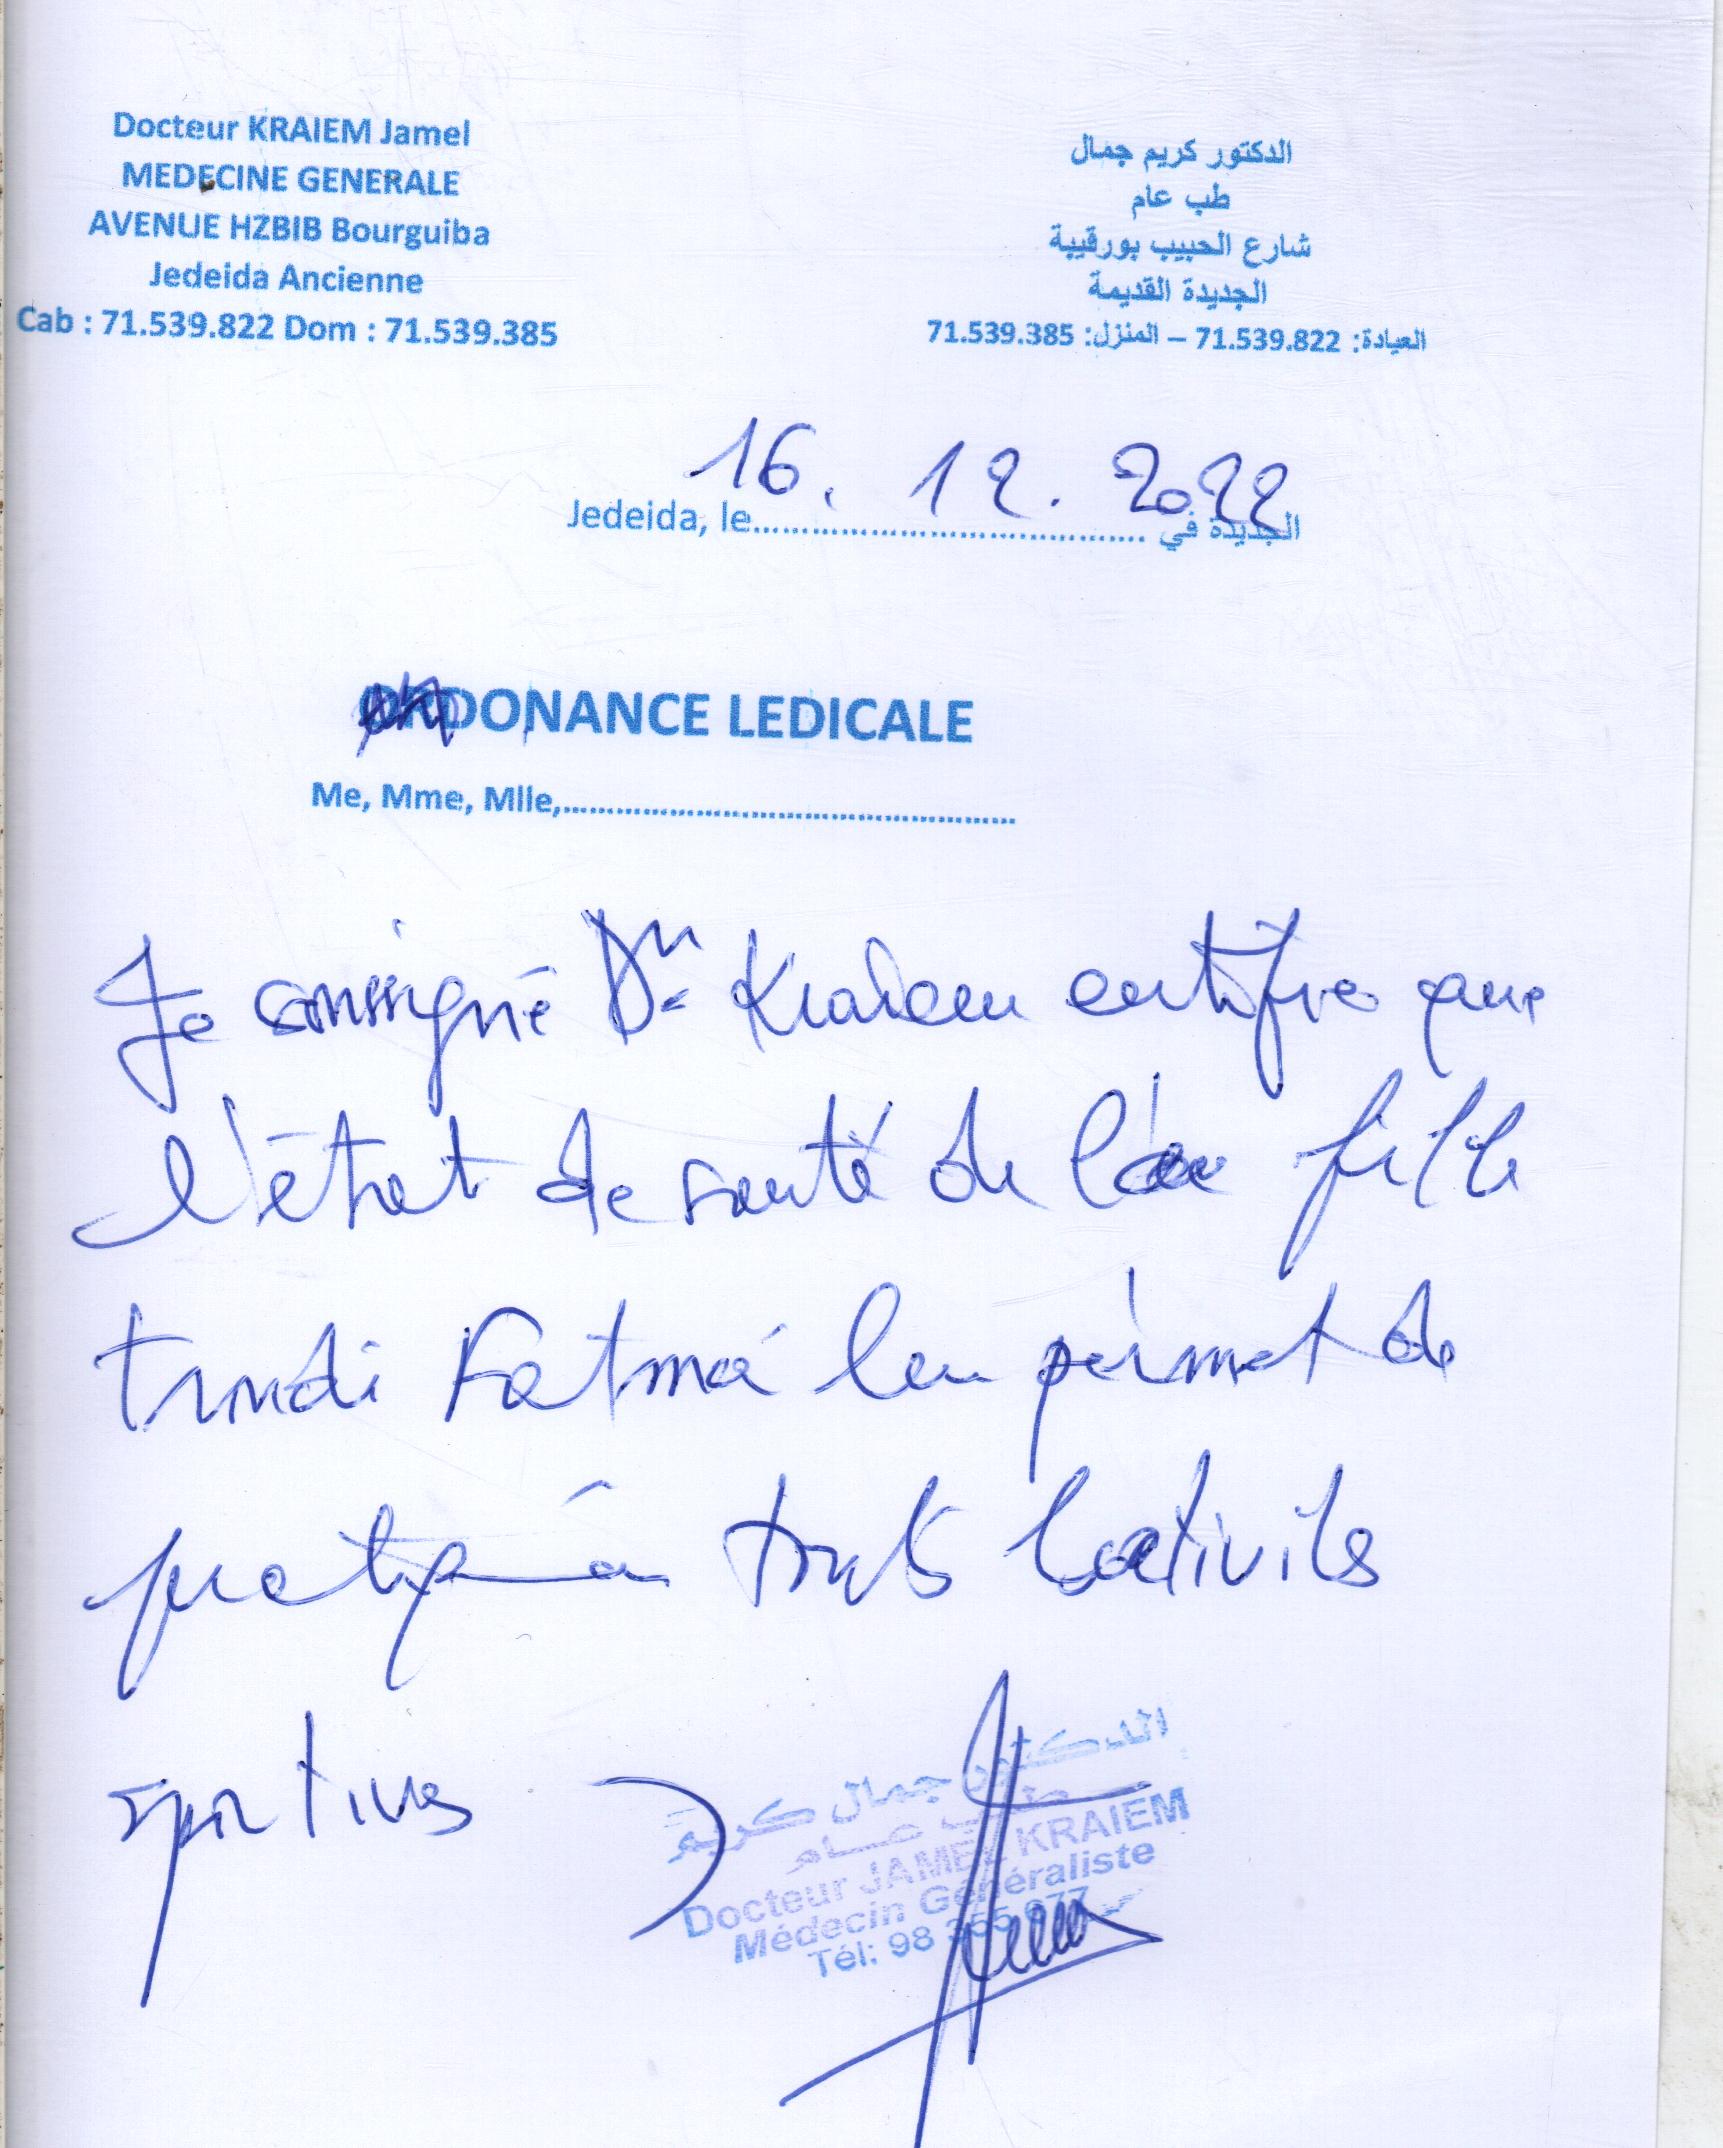 Docteur KRAIEM Jamel
MEDECINE GENERALE
AVENUE HZBIB Bourguiba
Jedeida Ancienne
Cab : 71.539.822 Dom : 71.539.385
الدكتور كريم جمال
طب عام
شارع الحبيب بورقيبة
الجديدة القديمة
العيادة: 71.539.822 – المنزل: 71.539.385
16. 12. 2022
Jedeida, le........................................ الجديدة في
ORDONANCE LEDICALE
Me, Mme, Mlle,..................................................
Je soussigné Dr Kraiem certifie que
l'état de santé de la fille
Fatma permet de
touts activités
sportives
الدكتور جمال كريم
طب عام
Docteur JAMEL KRAIEM
Médecin Généraliste
Tél: 98 355 077